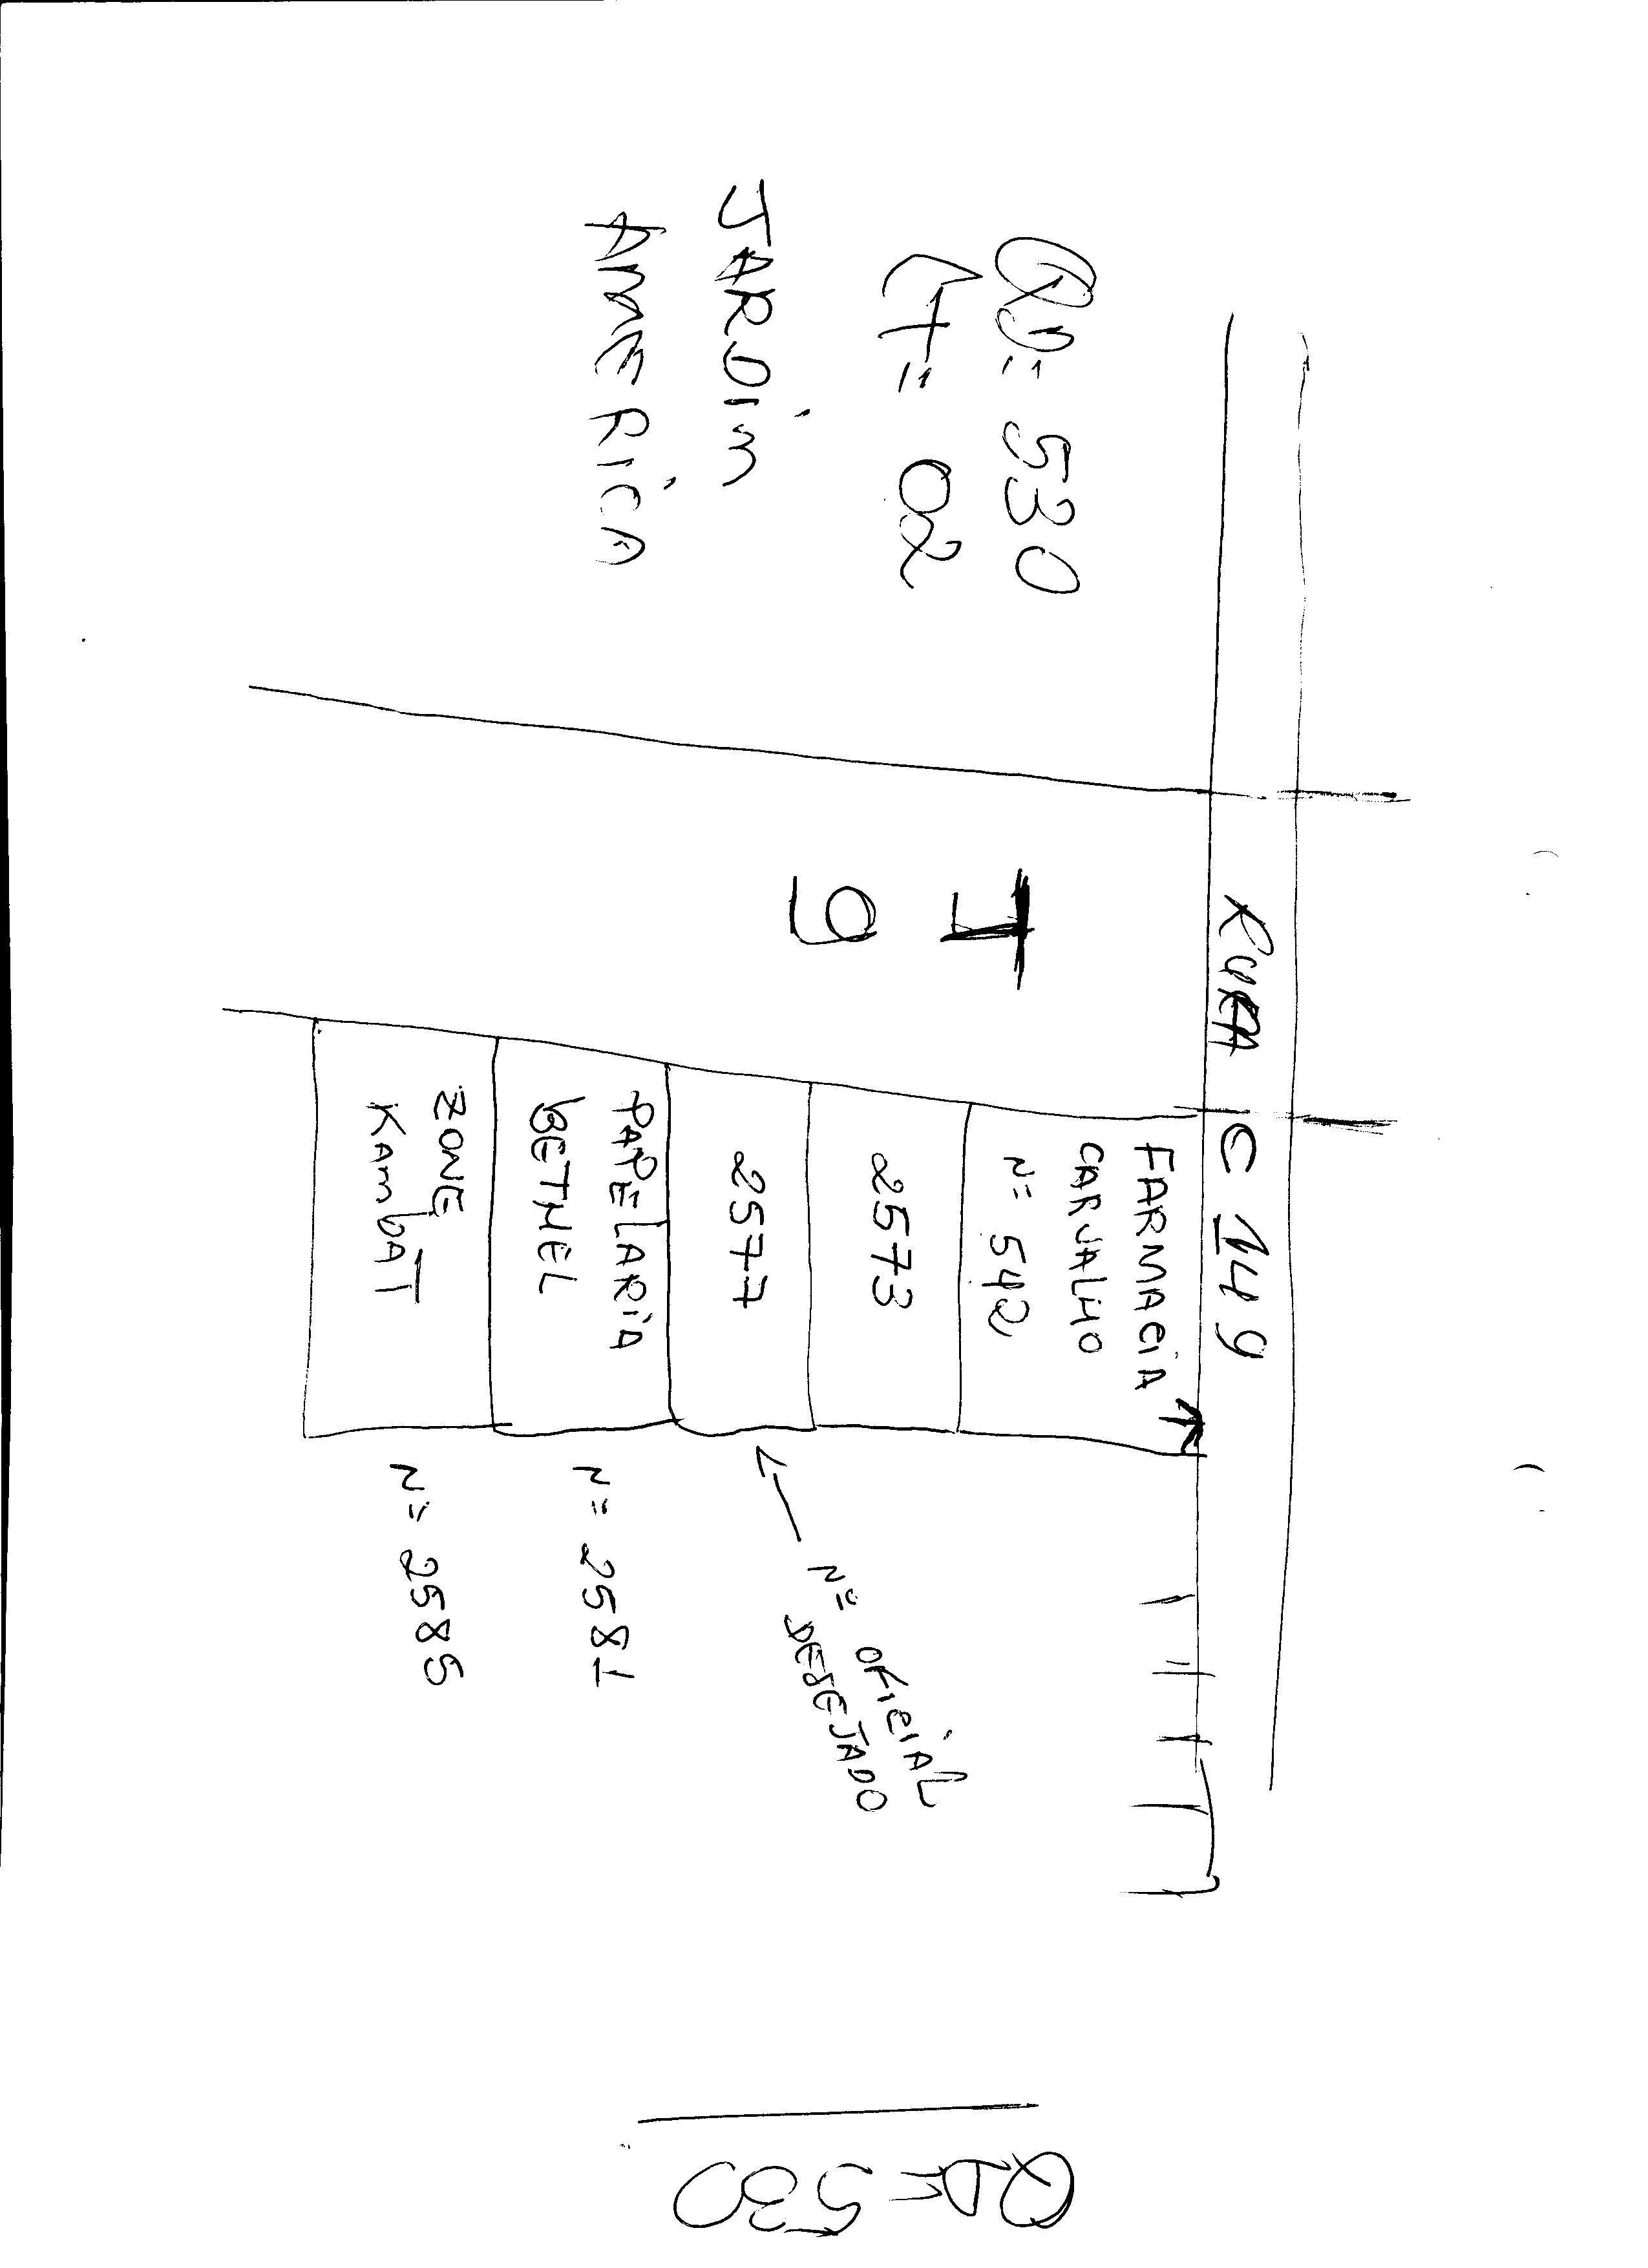 QD: 530
Lt: 02
JARDIM
AMERICA
RUA C 149
T
9
FARMACIA
CARVALHO
N= 542
2573
2577
PAPELARIA
BETHEL
ZONE
KAMBAT
N= OFICIAL
DESEJADO
N= 2581
N= 2585
QD= 530